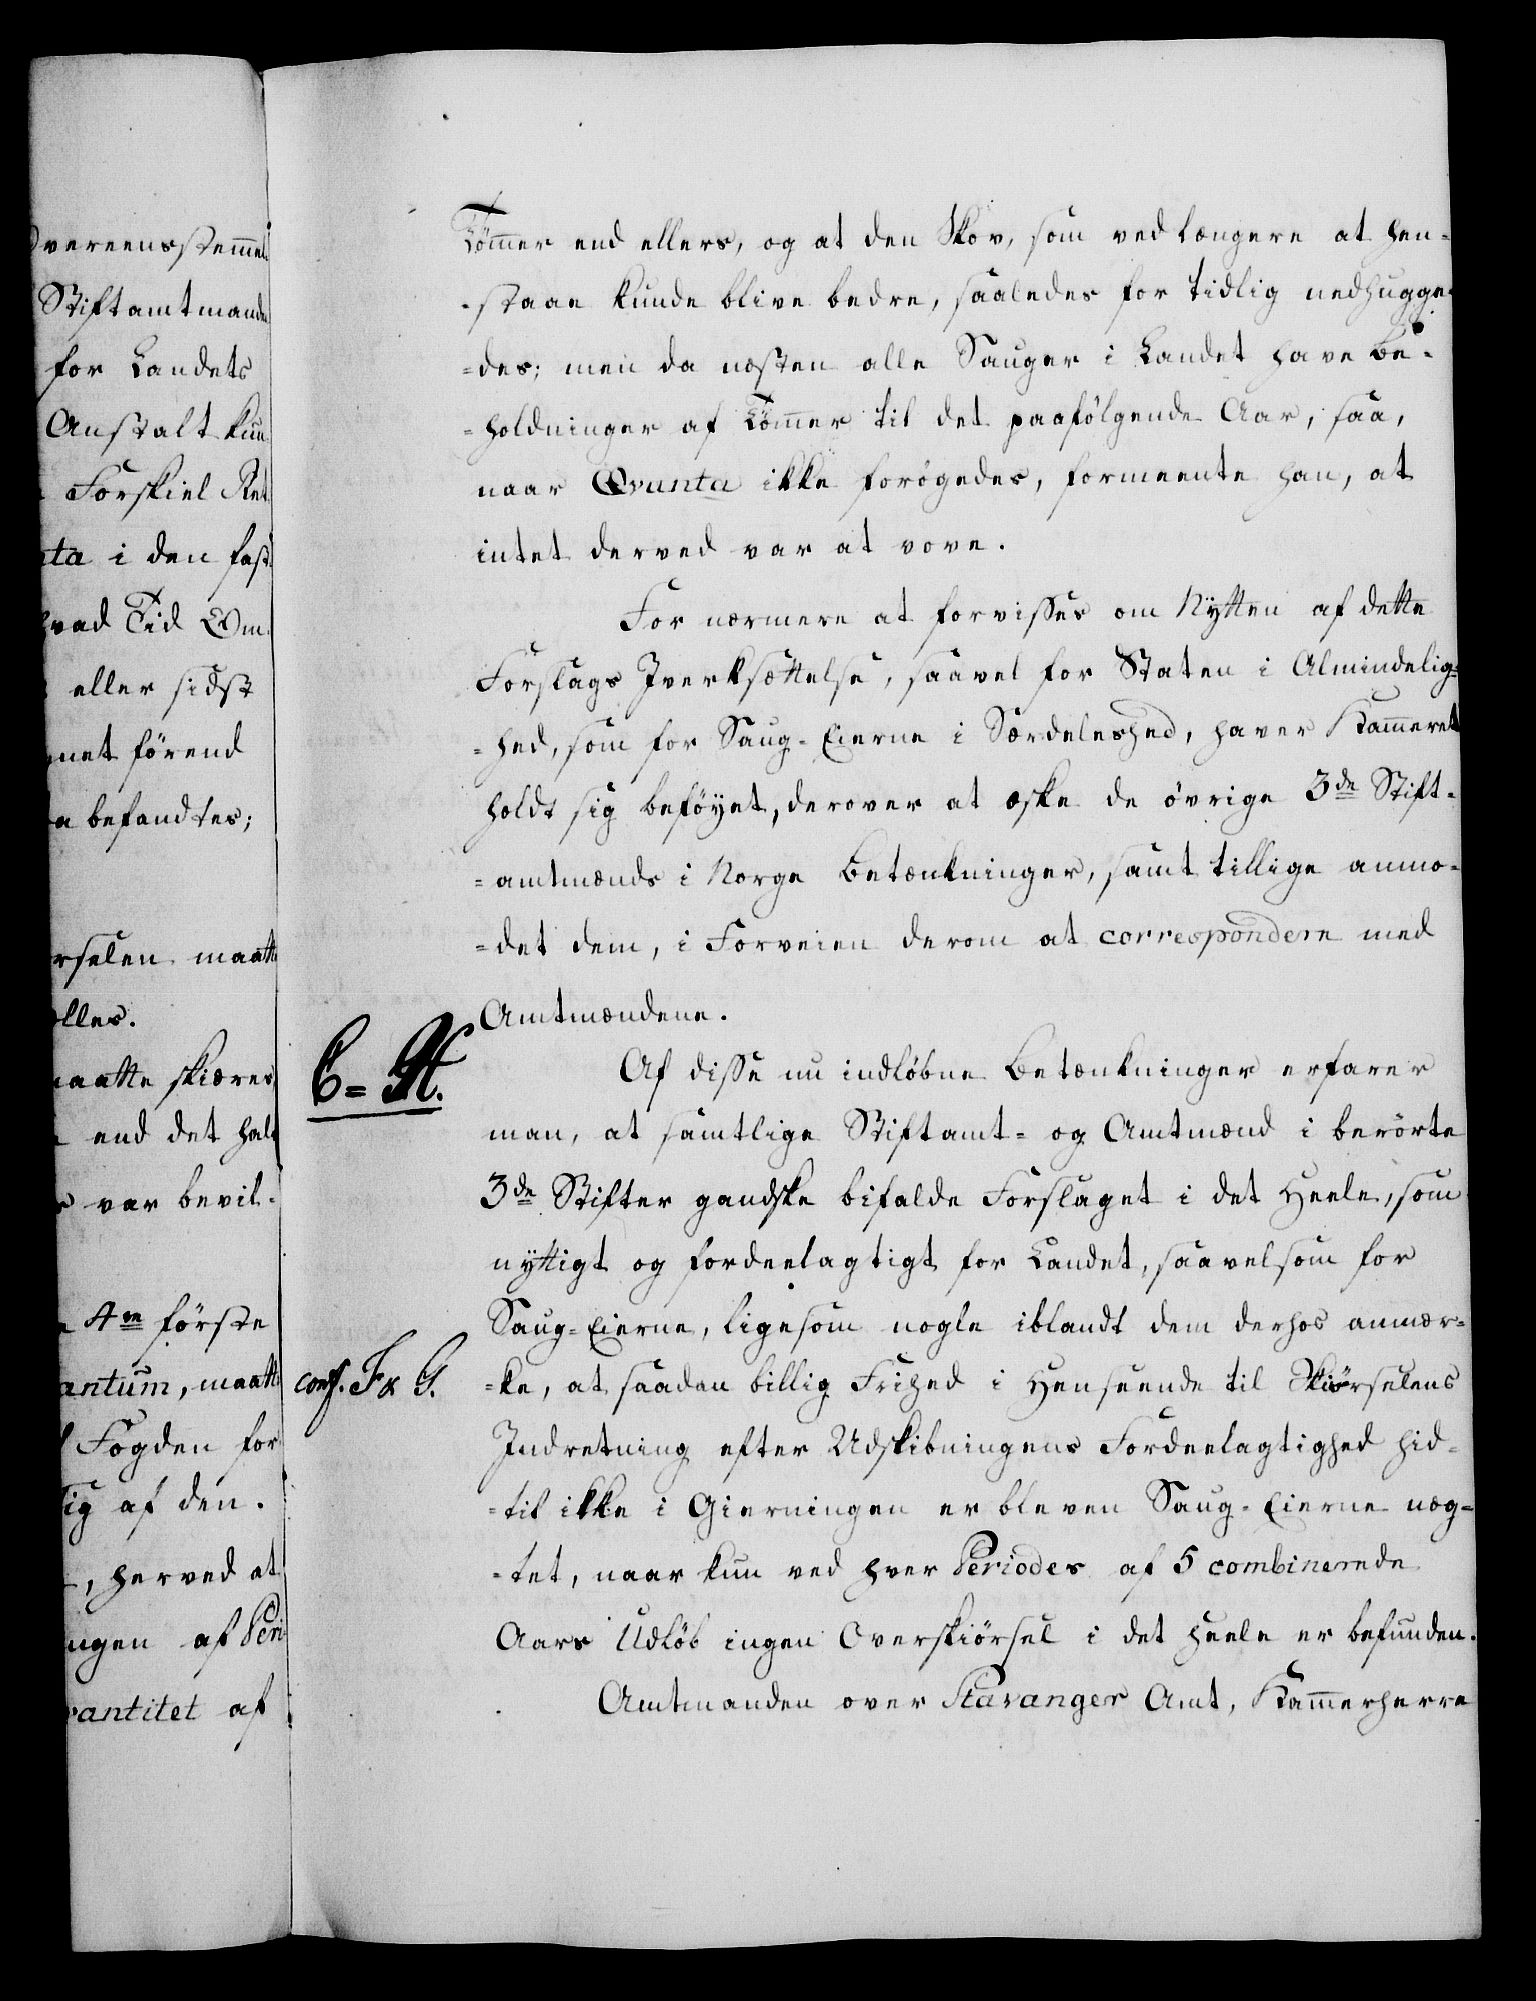 overeensstemmel
Stiftamtmande
for Landets
Anstalt kun
Forskiel Ret
ta i den fast
hvad Tid Om
eller sidst
net förend
a befandtes;
rselen maatte
lles.
maatte skiæres
end det hal
var bevil-
4re förste
antum, maatte
Fogden for
ig af den.
, herved at
ngen af Peri
vantitet af
Tömmer end ellers, og at den Skov, som ved længere at hen-
-staae kunde blive bedre, saaledes for tidlig nedhugge-
-des; men da næsten alle Sauger i Landet have Be-
-holdninger af Tömmer til det paafölgende Aar, saa,
naar Qvanta ikke forögedes, formeente han, at
intet derved var at vove.
For nærmere at forvisses om Nytten af dette
Forslags Iverksættelse, saavel for Staten i Almindelig-
-hed, som for Saug-Eierne i Særdeleshed, haver Kammeret
holdt sig beföyet, derover at æske de övrige 3de Stift-
-amtmænds i Norge Betænkninger, samt tillige anmo-
-det dem, i Forveien derom at correspondere med
Amtmændene.
C=H.
Af disse nu indløbne Betænkninger erfarer
man, at samtlige Stiftamt- og Amtmænd i berörte
3de Stifter gandske bifalde Forslaget i det Heele, som
nyttigt og fordeelagtigt for Landet, saavelsom for
Saug-Eierne, ligesom nogle iblandt dem derhos anmær-
conf. F & G.
-ke, at saadan billig Frihed i Henseende til Skiörselens
Indretning efter Udskibningens Fordeelagtighed hid-
-til ikke i Gierningen er bleven Saug-Eierne næg-
-tet, naar kun ved hver Periodes af 5 combinerede
Aars Udløb ingen Overskiörsel i det heele er befunden.
Amtmanden over Stavanger Amt, Kammerherre